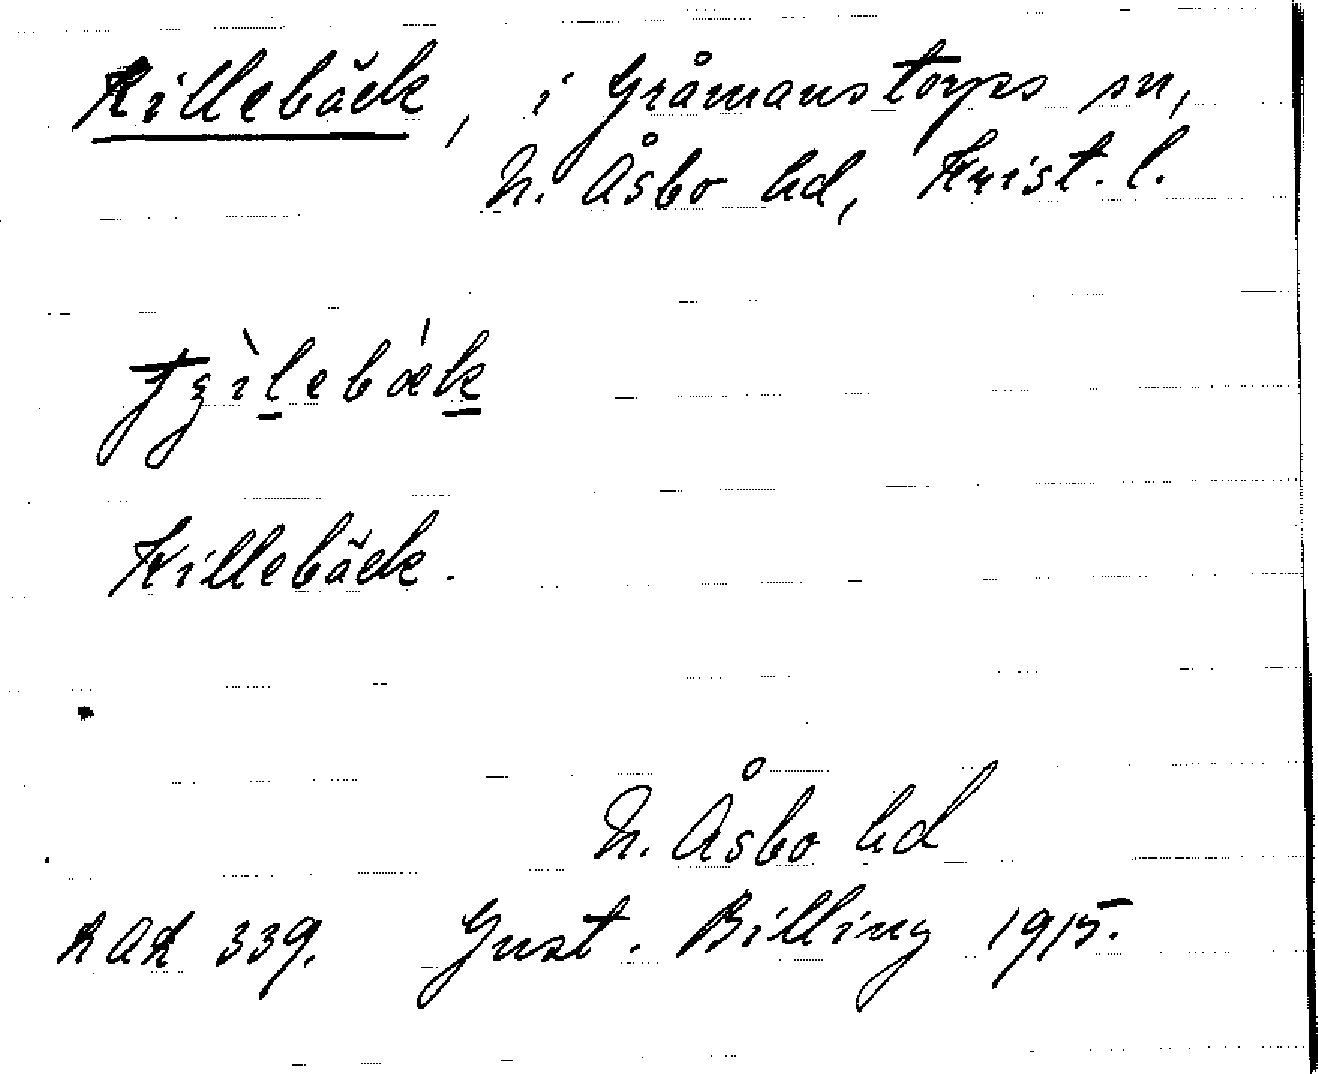 Killebäck, i Gråmanstorps sn,
N. Åsbo hd, Krist. l.
Killebäck.
N. Åsbo hd
339. Gust. Billing 1915.